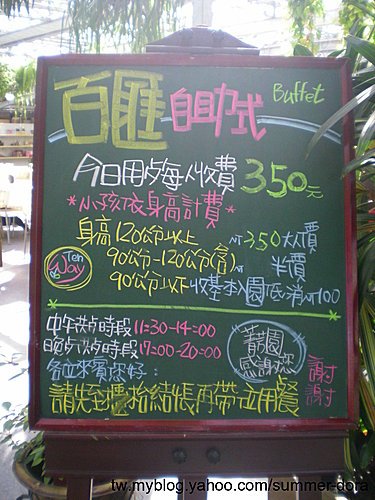 百匯自助式 Buffet
今日用歺每人收費350元
*小孩依身高計費*
身高120公分以上 NT350大人價
90公分-120公分(含) NT半價
90公分以下收基本入園低消NT100
Ten Way
中午歺時段11:30-14:00
晚歺時段17:00-20:00
各位來賓你好:
請先至櫃抬結帳再帶立用餐
園
感謝您
謝謝
tw.myblog.yahoo.com/summer-dora